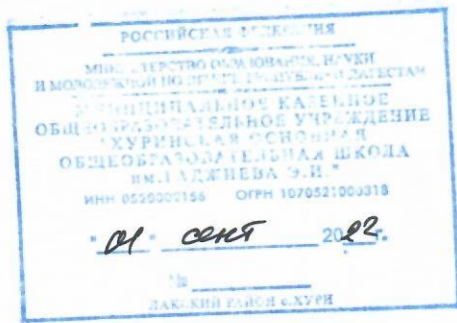 РОССИЙСКАЯ ФЕДЕРАЦИЯ
МИНИСТЕРСТВО ОБРАЗОВАНИЯ, НАУКИ
И МОЛОДЕЖНОЙ ПОЛИТИКИ РЕСПУБЛИКИ ДАГЕСТАН
МУНИЦИПАЛЬНОЕ КАЗЕННОЕ
ОБЩЕОБРАЗОВАТЕЛЬНОЕ УЧРЕЖДЕНИЕ
"ХУРИНСКАЯ ОСНОВНАЯ
ОБЩЕОБРАЗОВАТЕЛЬНАЯ ШКОЛА
им. ГАДЖИЕВА Э.И."
ИНН 0520002156 ОГРН 1070521000318
"01" сент 2022 г.
№
ЛАКСКИЙ РАЙОН с.ХУРИ